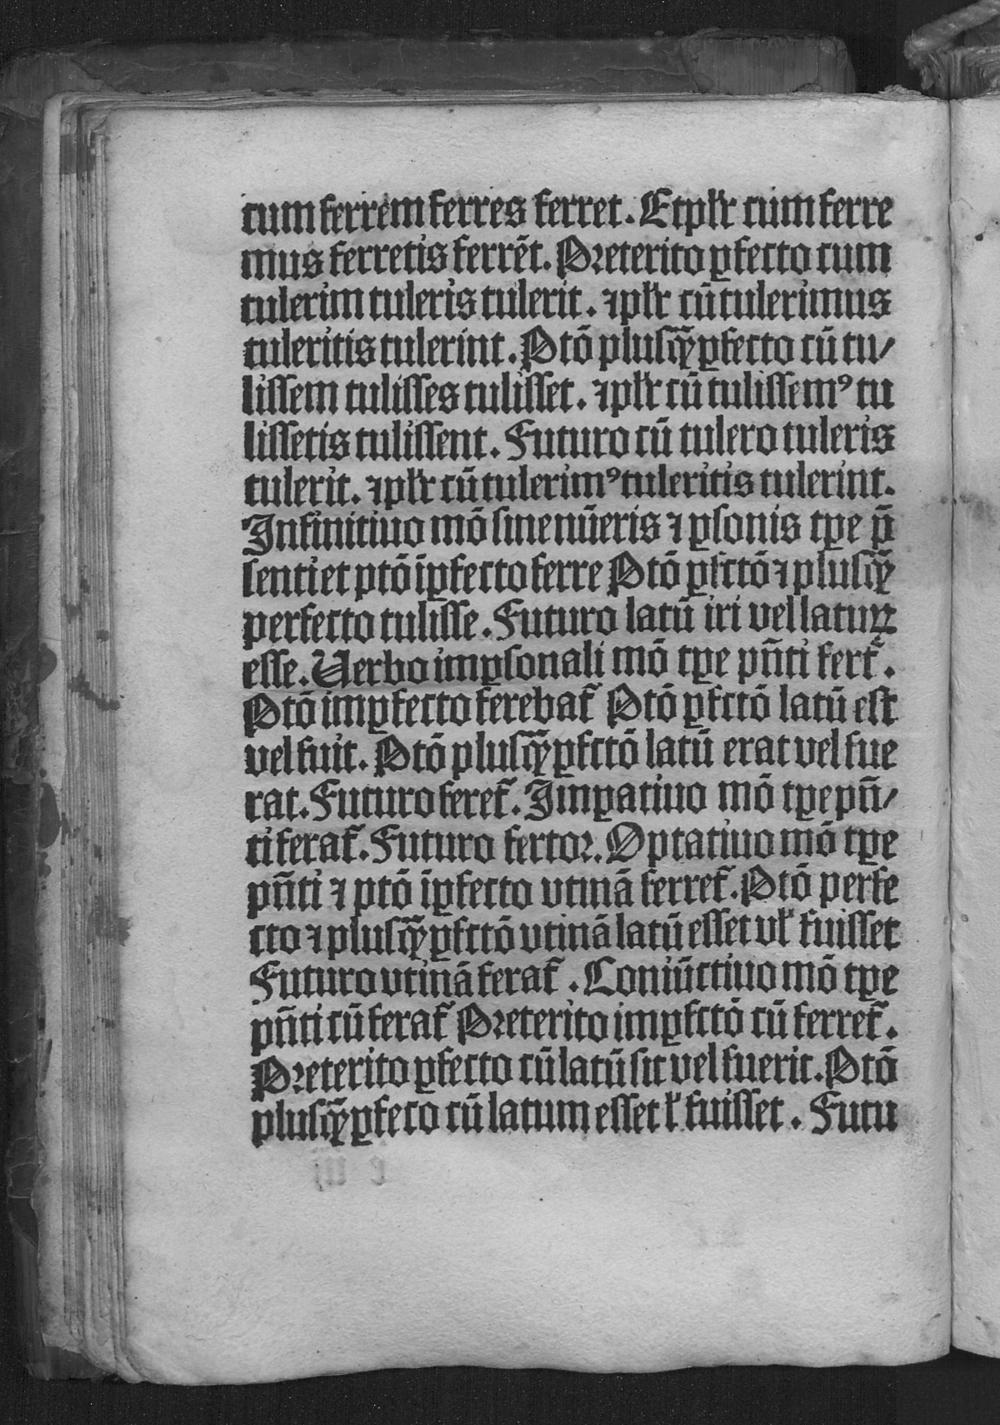 cum ferrem ferres ferret. Et pl̄r cum ferre
mus ferretis ferrēt. Preterito ꝑfecto cum
tulerim tuleris tulerit. ⁊ pl̄r cū tulerimus
tuleritis tulerint. Ptō plusq̄ꝑfecto cū tu/
lissem tulisses tulisset. ⁊ pl̄r cū tulissemꝰ tu
lissetis tulissent. Futuro cū tulero tuleris
tulerit. ⁊ pl̄r cū tulerimꝰ tuleritis tulerint.
Infinitiuo mō sine nūeris ⁊ ꝑsonis tꝑe p̄
senti et ptō īꝑfecto ferre Ptō ꝑfctō ⁊ plusq̄ꝫ
perfecto tulisse. Futuro latū iri vel laturꝫ
esse. Uerbo imꝑsonali mō tꝑe pn̄ti fert̄.
Ptō imꝑfecto ferebat̄ Ptō ꝑfctō latū est
vel fuit. Ptō plusq̄ꝑfctō latū erat vel fue
rat. Futuro feret̄. Imꝑatiuo mō tꝑe pn̄/
ti ferat̄. Futuro fertor. Optatiuo mō tꝑe
pn̄ti ⁊ ptō īꝑfecto vtinā ferret̄. Ptō perfe
cto ⁊ plusq̄ꝑfctō vtinā latū esset vl̄ fuisset
Futuro vtinā ferat̄. Coniūctiuo mō tꝑe
pn̄ti cū ferat̄ Preterito imꝑfctō cū ferret̄.
Preterito ꝑfecto cū latū sit vel fuerit. Ptō
plusq̄ꝑfeco cū latum esset l̄ fuisset. Futu